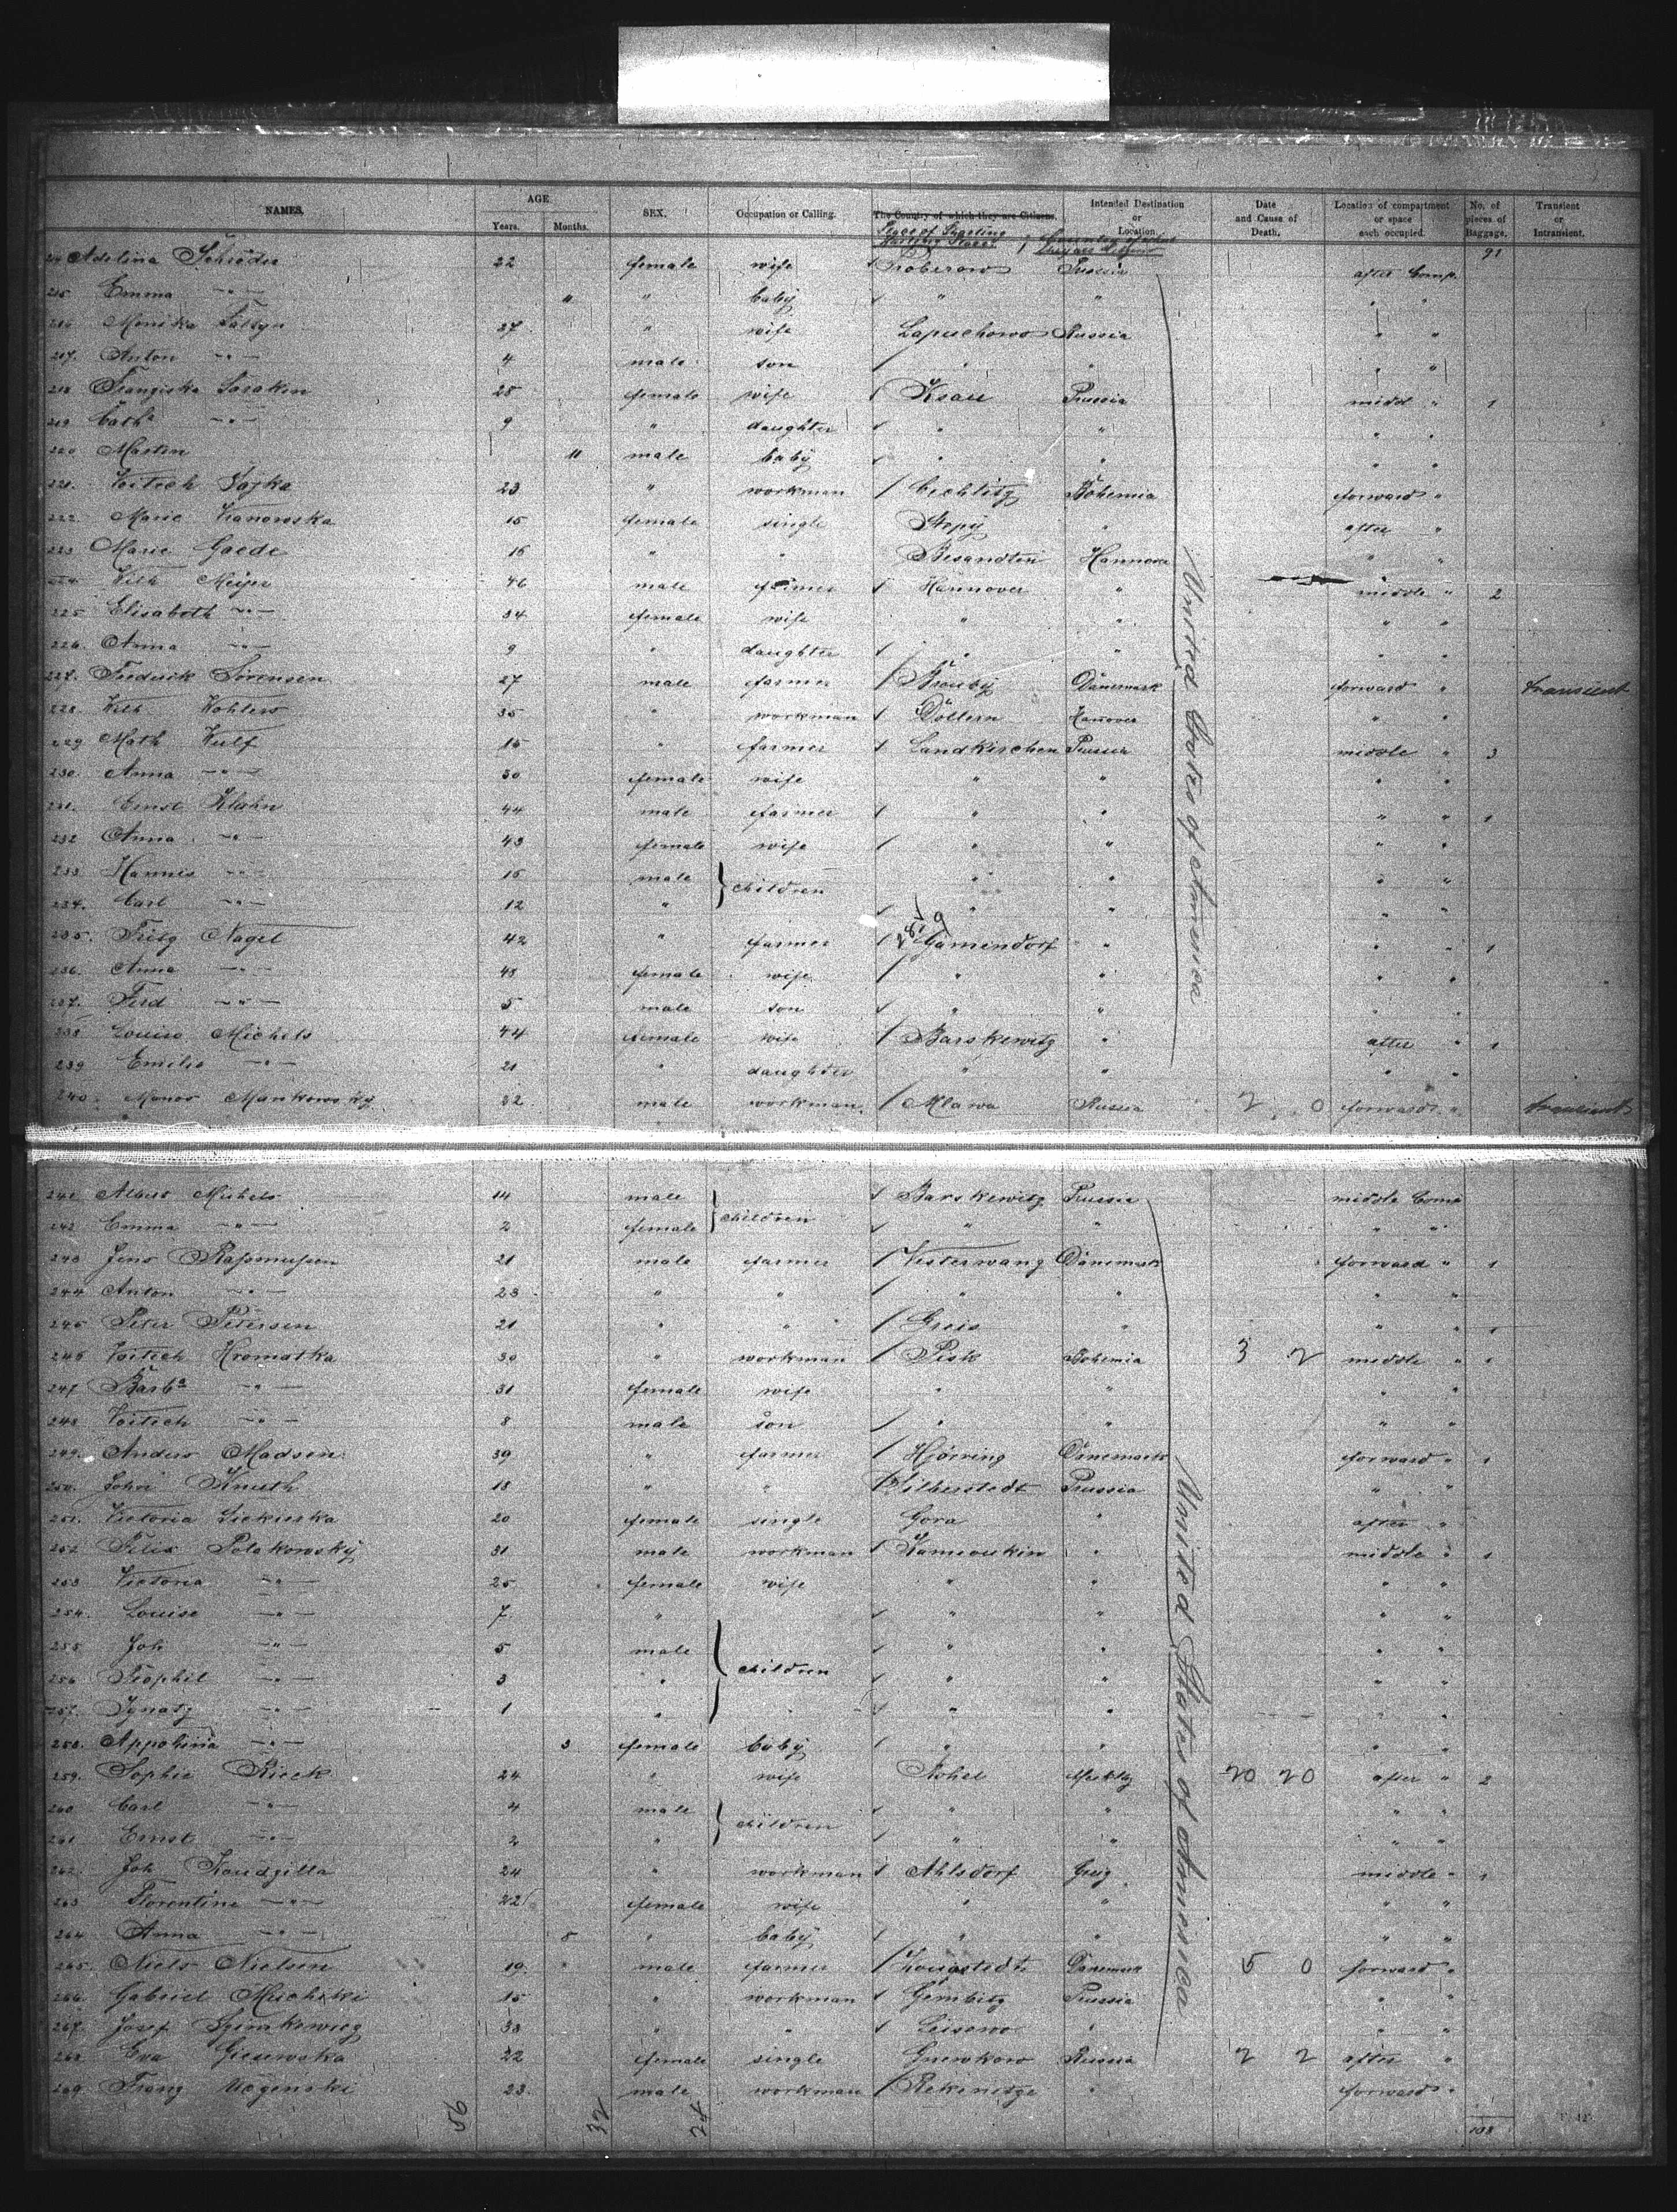 NAMES. AGE. Years. Months. SEX. Occupation or Calling. The Country of which they are Citizens. Intended Destination or Location. Date and Cause of Death. Location of compartment or space each occupied. No. of pieces of Baggage. Transient or Intransient.
Place of Starting
91
214 Adelina Schröder 22 female wife Proberow Prussia after Comp.
215 Emma -"- 11 " baby " " " "
216 Monika 27 " wife Lapuchowo Russia " "
217. Anton -"- 4 male son " " " "
218 Franziska Sarakin 28 female wife Ksau Prussia middl " 1
219 Cath<sup>a</sup> -"- 9 " daughter " " " "
220 Martin 11 male baby " " " "
221. Voitech Sajka 23 " workman Cechlitz Bohemia forward "
222 Marie Vianowska 15 female single Bohemia after "
223 Marie Gaede 16 " " Besandten Hannover " "
224. Wilh Meijer 46 male farmer Hannover " middle " 2
225 Elisabeth -"- 34 female wife " " " "
226. Anna -"- 9 " daughter " " " "
227. Frederik Sörensen 27 male farmer Brouby Dänemark forward " transient
228. Wilh Kohlers 35 " workman Döllern Hanover " "
229 Math Wulf 15 " farmer Landkirchen Prussia middle " 3
230. Anna -"- 30 female wife " " " "
231. Ernst Klahn 44 male farmer " " " " 1
232 Anna -"- 43 female wife " " " "
233 Hannes -"- 15 male children " " " "
234. Carl -"- 12 " " " " "
235. Fritz Nagel 42 " farmer Gamendorf " " " 1
236. Anna -"- 48 female wife " " " "
237. Ferd -"- 5 male son " " " "
238 Louise Michels 44 female wife Barskewitz " after " 1
239 Emilie -"- 21 " daughter " " " "
240. Monos Mankowsky 32 male workman Mlawa Russia 2 0 forward " transient
241 Albert Michels 14 male children Barskewitz Prussia middle Comp
242 Emma -"- 2 female " " " "
243 Jens Rasmussen 21 male farmer Vesterwang Dänemark forward " 1
244 Anton -"- 23 " " " " " "
245 Peter Petersen 21 " " Greis " " " 1
246 Voitech Kromatka 30 " workman Pisk Bohemia 3 2 middle " 1
247 Barb<sup>a</sup> -"- 31 female wife " " " "
248. Voitech -"- 8 male son " " " "
249. Anders Madsen 39 " farmer Hjörring Dänemark forward " 1
250. Johs Knuth 18 " " Silberstedt Prussia " "
251. Victoria Siekierska 20 female single Gora " after "
252 Felix Polakowsky 31 male workman Kamioukin " middle " 1
253 Victoria -"- 25 female wife " " " "
254. Louise -"- 7 " " " " "
255 Joh -"- 5 male children " " " "
256 Teophil -"- 3 " " " " "
257. Ignatz -"- 1 " " " " "
258. Appolina -"- 3 female baby " " " "
259. Sophie Rieck 24 " wife Mecklbg 20 20 after " 2
260 Carl -"- 4 male children " " " "
261 Ernst -"- 2 " " " " "
262. Joh Koudzilla 24 " workman Ahlsdorf middle " 1
263 Florentine -"- 22 female wife " " " "
264 Anna -"- 8 " baby " " " "
265. Niels Nielsen 19 male farmer Dänemark 5 0 forward "
266. Gabriel Muchski 15 " workman Gembitz Prussia " "
267. Josef Szimkewicz 38 " " Leisewo " " "
268 Eva Giesewska 22 female single Gniewkow Russia 2 2 after "
269. Franz 23. male workman Rekinitze " forward "
United States of America
United States of America
56 32 24 108